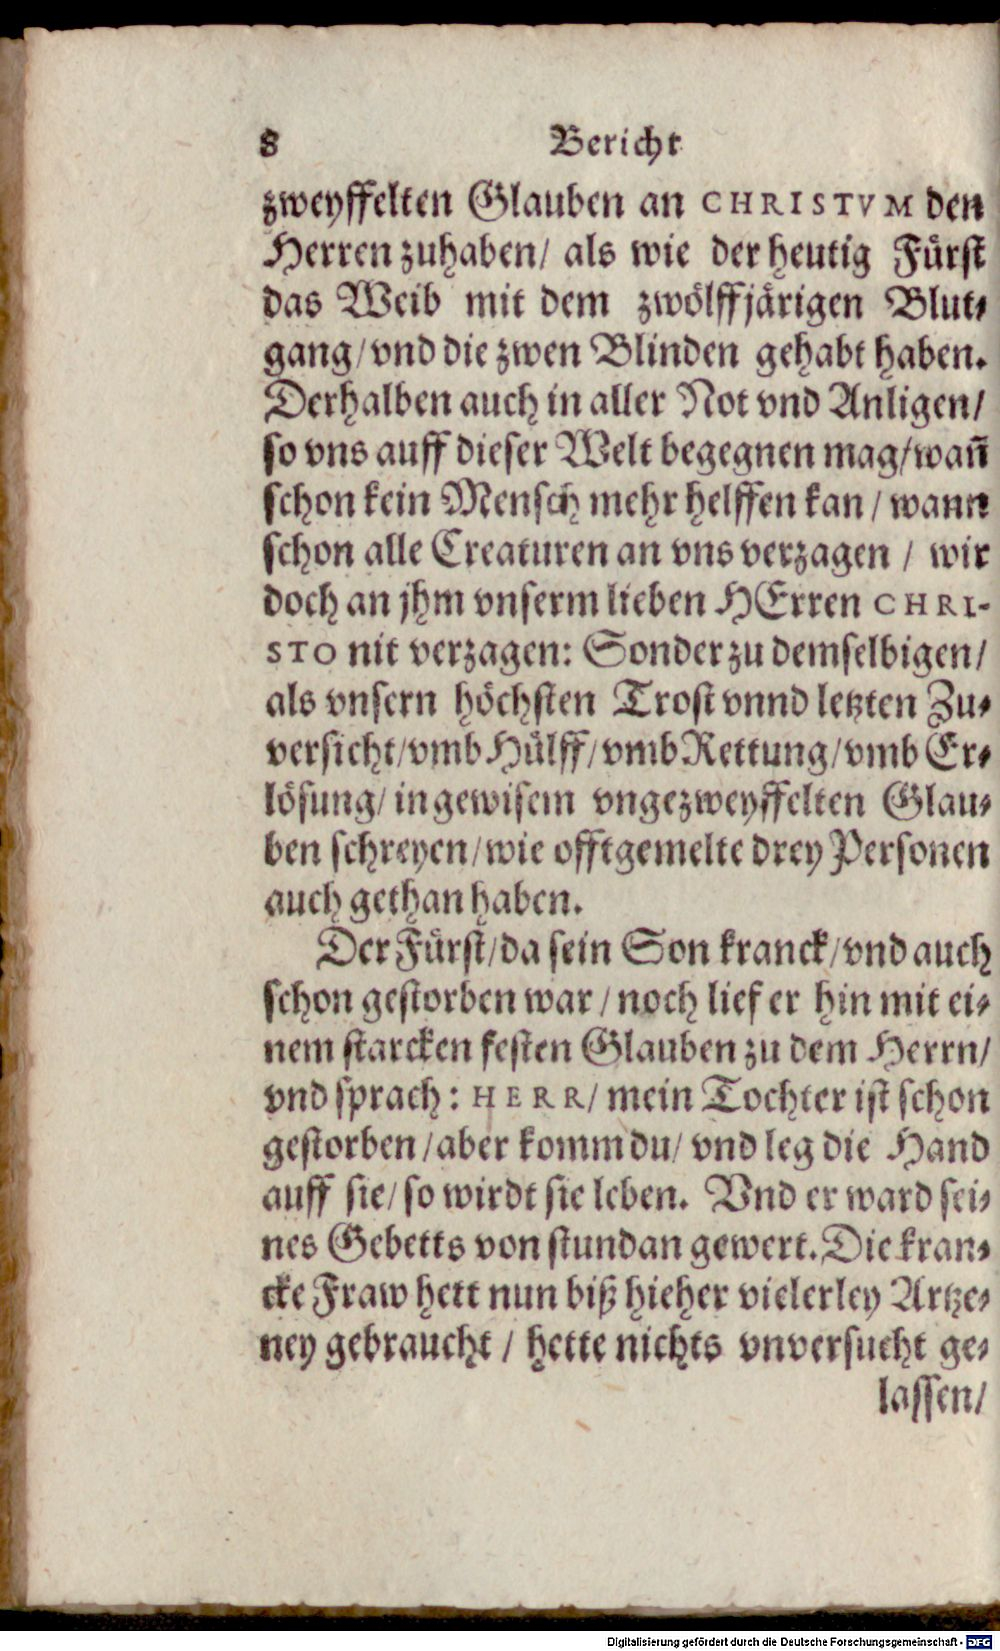 8 Bericht
zweyffelten Glauben an CHRISTVM den
Herren zuhaben/ als wie der heutig Fürst
das Weib mit dem zwölffjärigen Blut-
gang/ vnd die zwen Blinden gehabt haben.
Derhalben auch in aller Not vnd Anligen/
so vns auff dieser Welt begegnen mag/ wañ
schon kein Mensch mehr helffen kan / wann
schon alle Creaturen an vns verzagen / wir
doch an jhm vnserm lieben HErren CHRI-
STO nit verzagen: Sonder zu demselbigen/
als vnsern höchsten Trost vnnd letzten Zu-
versicht/ vmb Hülff/ vmb Rettung/ vmb Er-
lösung/ in gewisem vngezweyffelten Glau-
ben schreyen/ wie offtgemelte drey Personen
auch gethan haben.
Der Fürst/ da sein Son kranck/ vnd auch
schon gestorben war / noch lief er hin mit ei-
nem starcken festen Glauben zu dem Herrn/
vnd sprach: HERR/ mein Tochter ist schon
gestorben / aber komm du/ vnd leg die Hand
auff sie/ so wirdt sie leben. Vnd er ward sei-
nes Gebetts von stundan gewert. Die kran-
cke Fraw hett nun biß hieher vielerley Artze-
ney gebraucht / hette nichts vnversucht ge-
lassen/
Digitalisierung gefördert durch die Deutsche Forschungsgemeinschaft - DFG